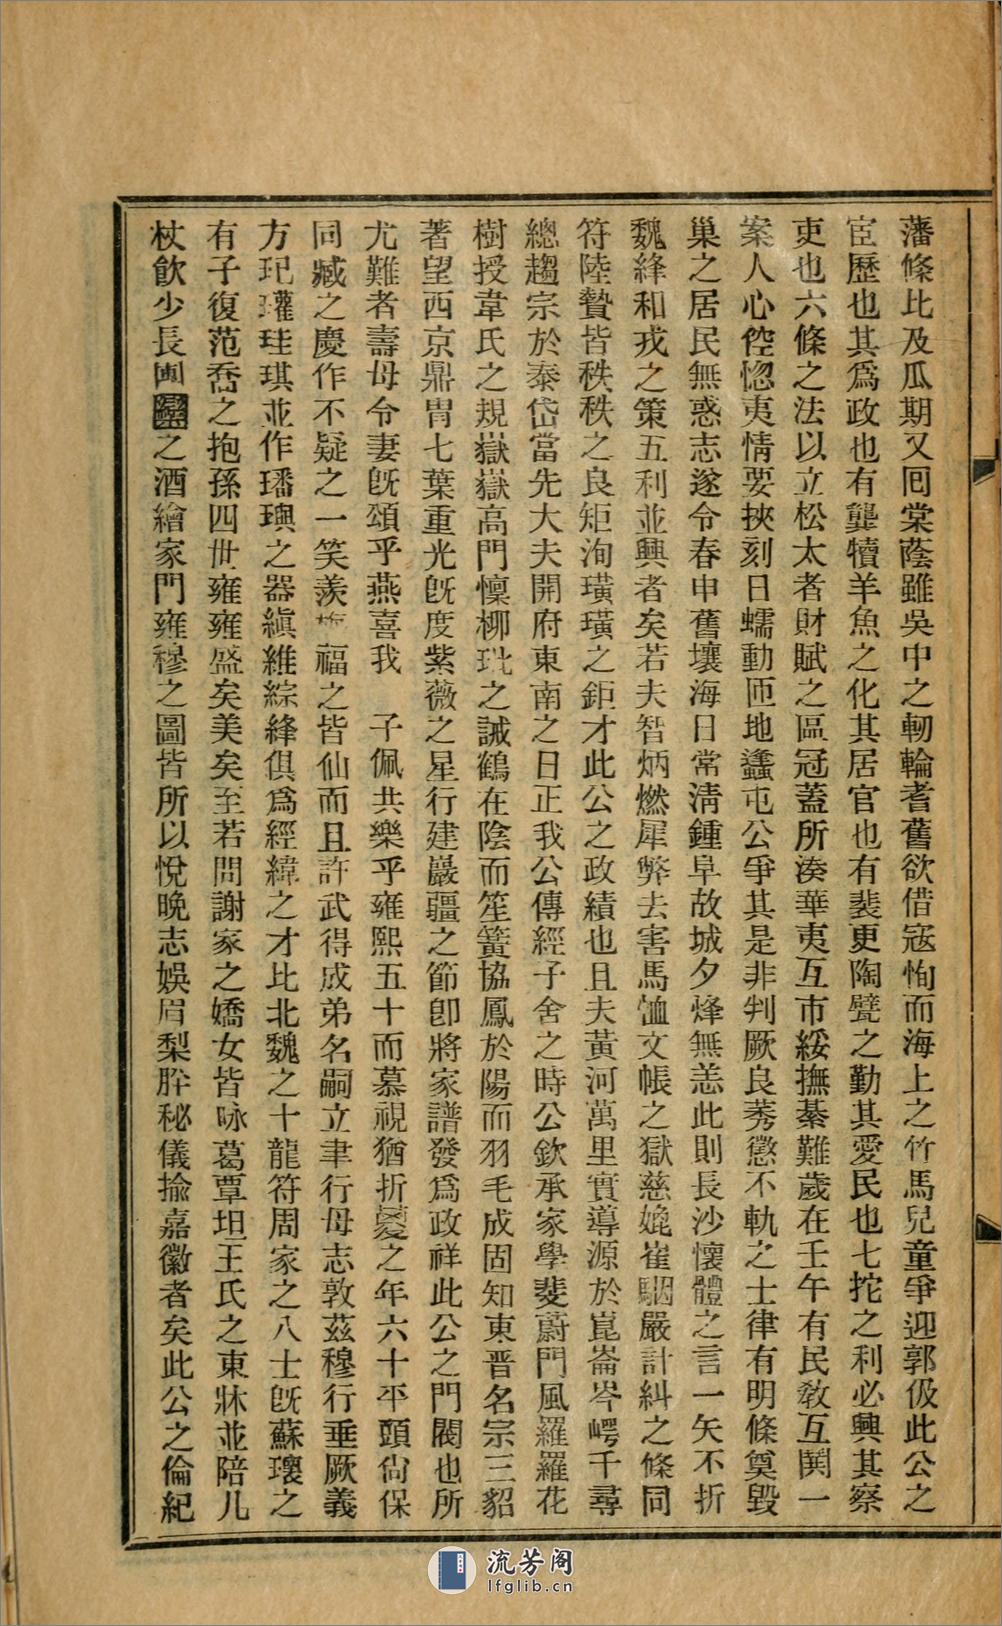 藩條比及瓜期又囘棠蔭雖吳中之軔輪耆舊欲借寇恂而海上之竹馬兒童爭迎郭伋此公之
宦歷也其爲政也有龔犢羊魚之化其居官也有裴更陶甓之勤其愛民也七抡之利必興其察
吏也六條之法以立松太者財賦之區冠蓋所湊華夷互市綏撫綦難歲在壬午有民教互鬨一
案人心倥惚夷情要挾刻日蠕動匝地蠭屯公爭其是非判厥良莠懲不軌之士律有明條奠毀
巢之居民無惑志遂令春申舊壤海日常淸鍾阜故城夕烽無恙此則長沙懷體之言一矢不折
魏絳和戎之策五利並興者矣若夫智炳燃犀弊去害馬恤文帳之獄慈媲崔駰嚴計糾之條同
符陸贄皆秩秩之良矩洵璜璜之鉅才此公之政績也且夫黃河萬里實導源於崑崙岑崿千尋
總趨宗於泰岱當先大夫開府東南之日正我公傳經子舍之時公欽承家學斐蔚門風羅羅花
樹授韋氏之規嶽嶽高門懍柳玭之誡鶴在陰而笙簧協鳳於陽而羽毛成固知東晋名宗三貂
著望西京鼎胄七葉重光旣度紫薇之星行建嚴疆之節卽將家譜發爲政祥此公之門閥也所
尤難者壽母令妻旣頌乎燕喜我 子佩共樂乎雍熙五十而慕視猶折葼之年六十平頭尙保
同臧之慶作不疑之一笑羨 福之皆仙而且許武得成弟名嗣立聿行母志敦茲穆行垂厥義
方玘瓘珪琪並作璠璵之器縝維綜絳俱爲經緯之才比北魏之十龍符周家之八士旣蘇瓌之
有子復范喬之抱孫四世雍雍盛矣美矣至若問謝家之嬌女皆咏葛覃坦王氏之東牀並陪几
杖飮少長團圞之酒繪家門雍穆之圖皆所以悅晚志娛眉梨胙秘儀揄嘉徽者矣此公之倫紀
流芳阁
lfglib.cn